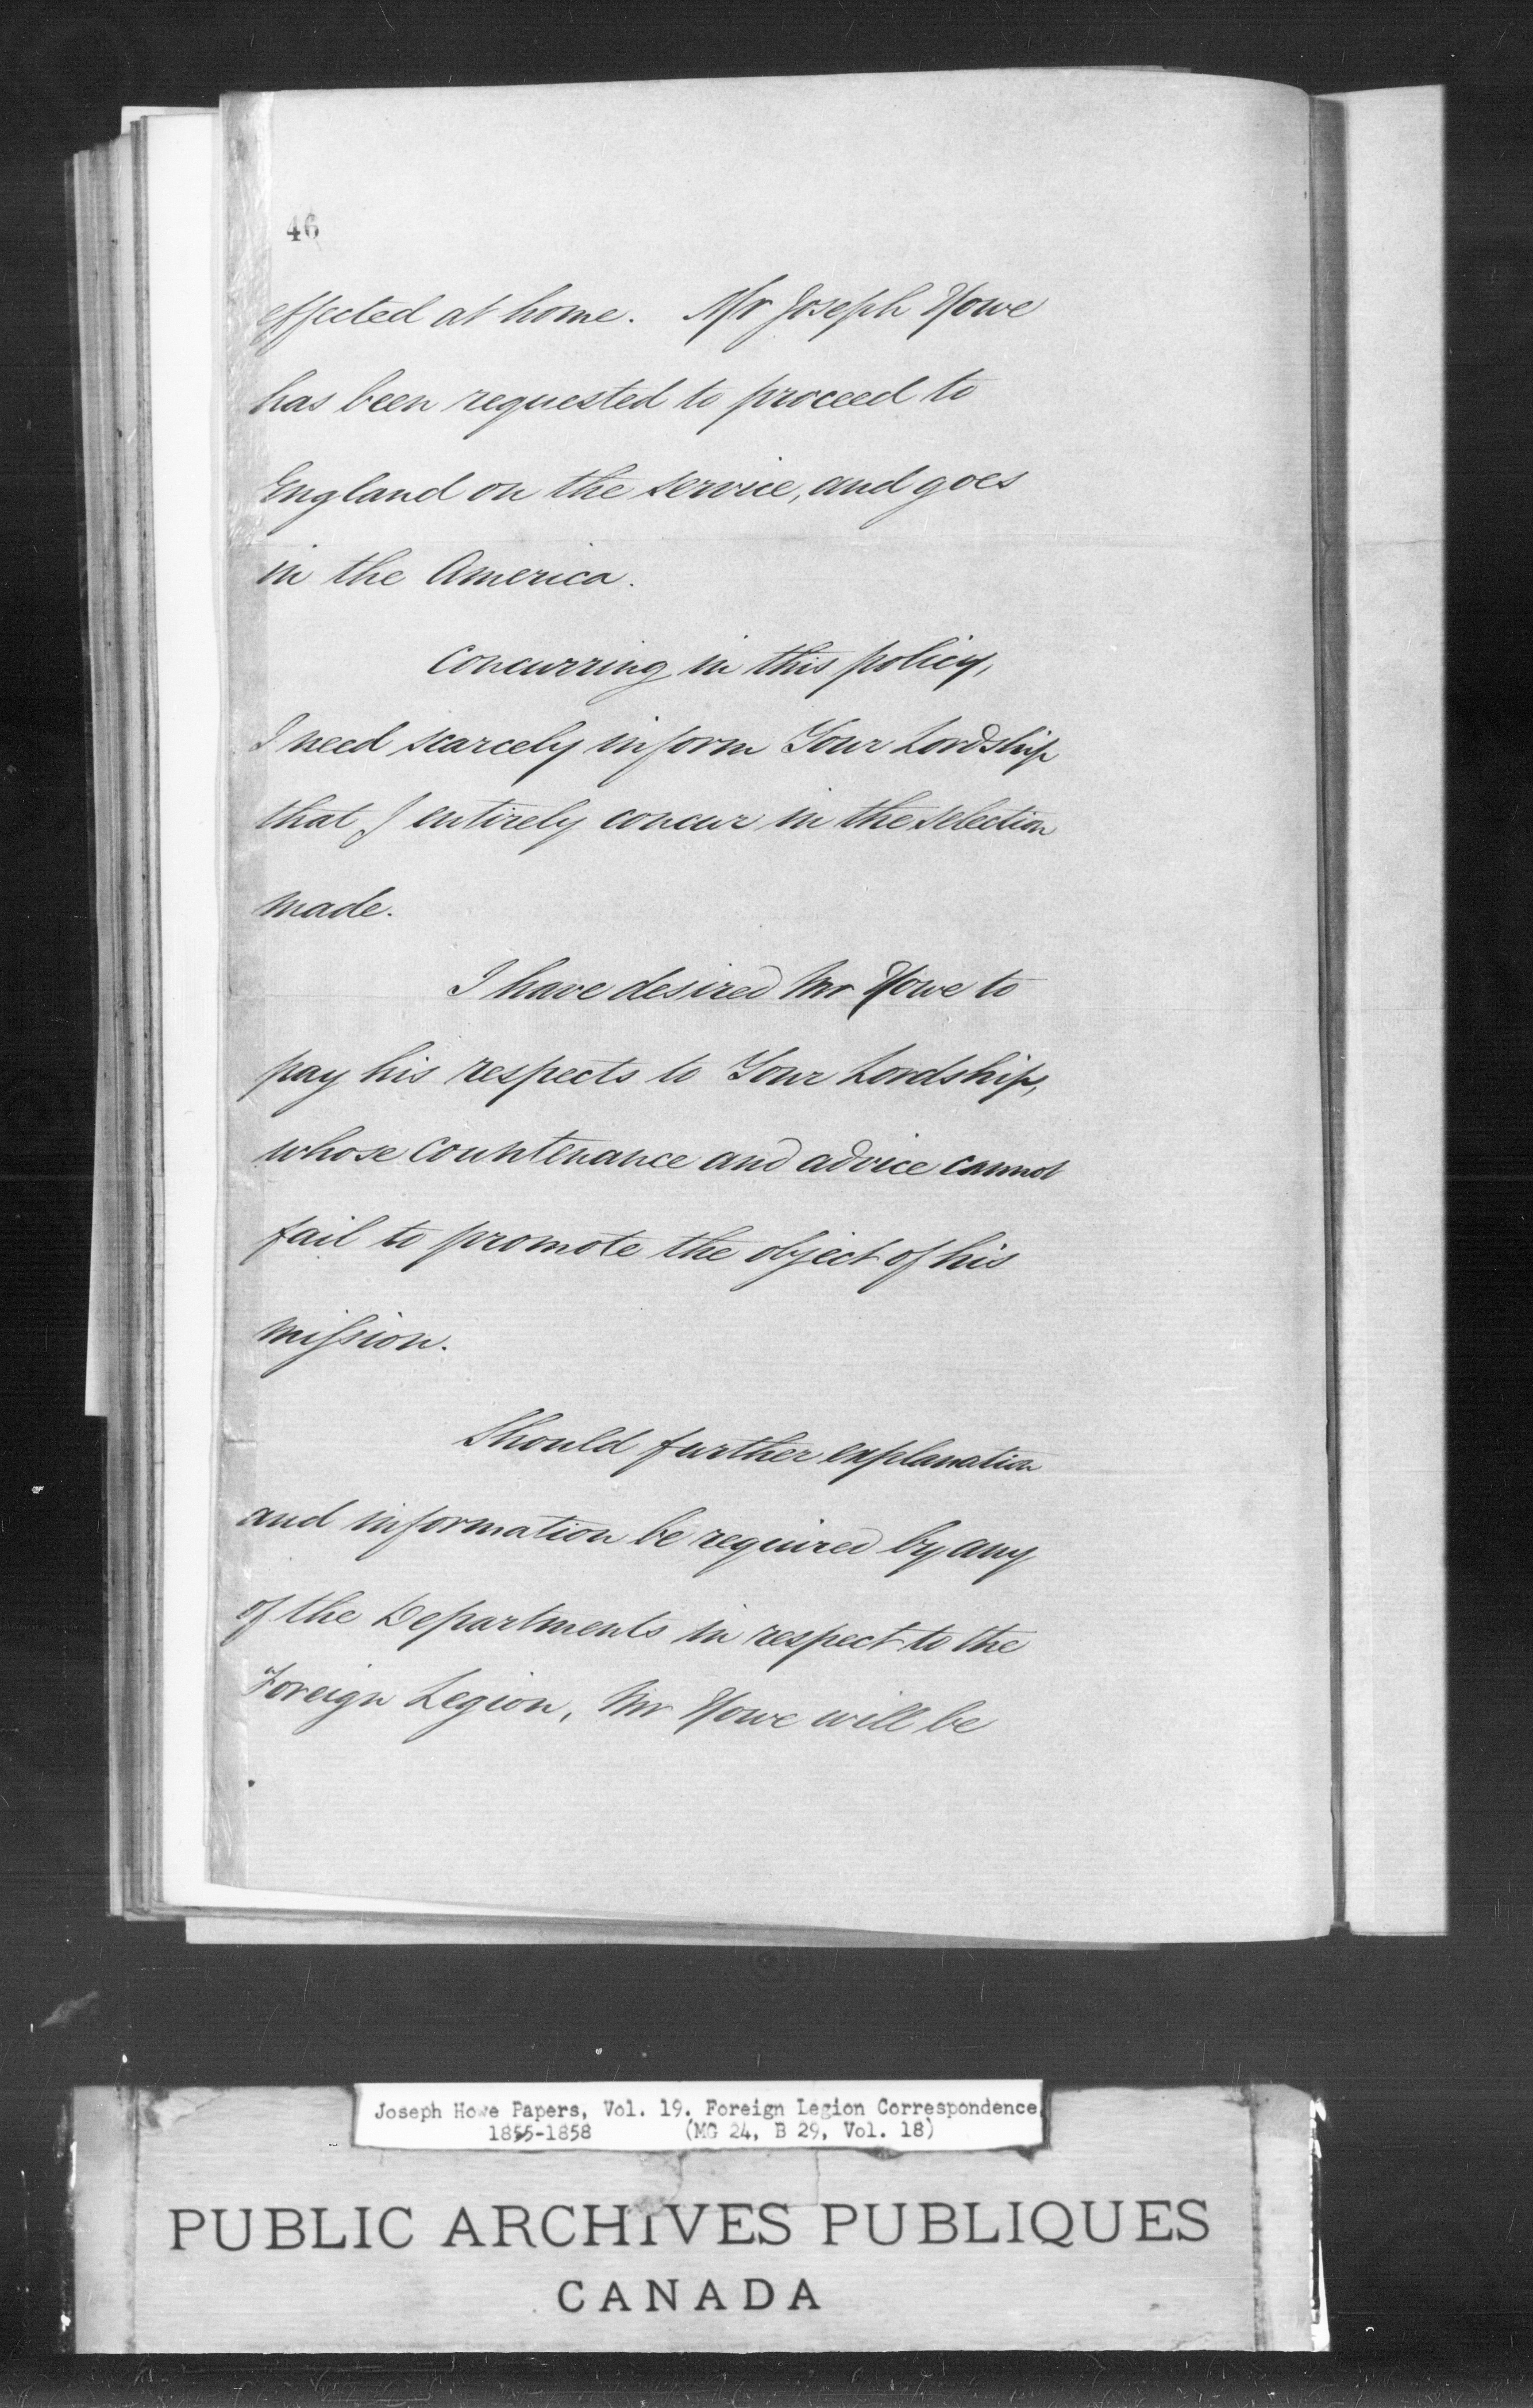 46
effected at home. Mr Joseph Howe
has been requested to proceed to
England on the service, and goes
in the America.
Concurring in this policy,
I need scarcely inform Your Lordship
that I entirely concur in the selection
made.
I have desired Mr Howe to
pay his respects to Your Lordship,
whose countenance and advice cannot
fail to promote the object of his
mission.
Should further explanation
and information be required by any
of the Departments in respect to the
Foreign Legion, Mr Howe will be
Joseph Howe Papers, Vol. 19. Foreign Legion Correspondence,
1855-1858 (MG 24, B 29, Vol. 18)
PUBLIC ARCHIVES PUBLIQUES
CANADA